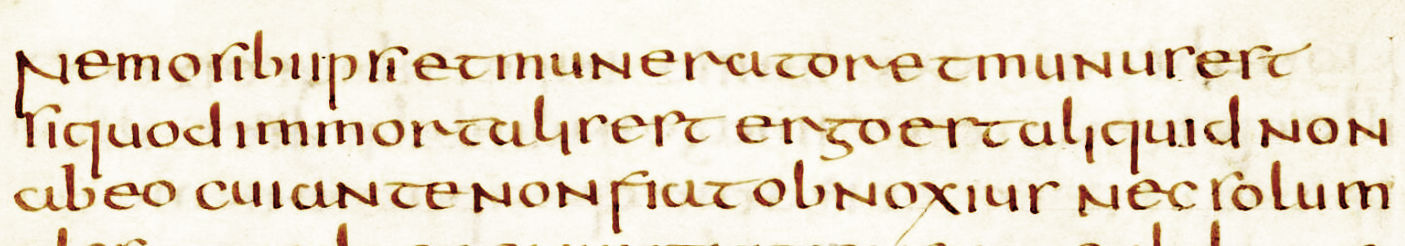 Nemosibiipsietmuneratoretmunusest
siquodimmortalisest ergoestaliquid non
abeo cuiantenonfiatobnoxius nec solum